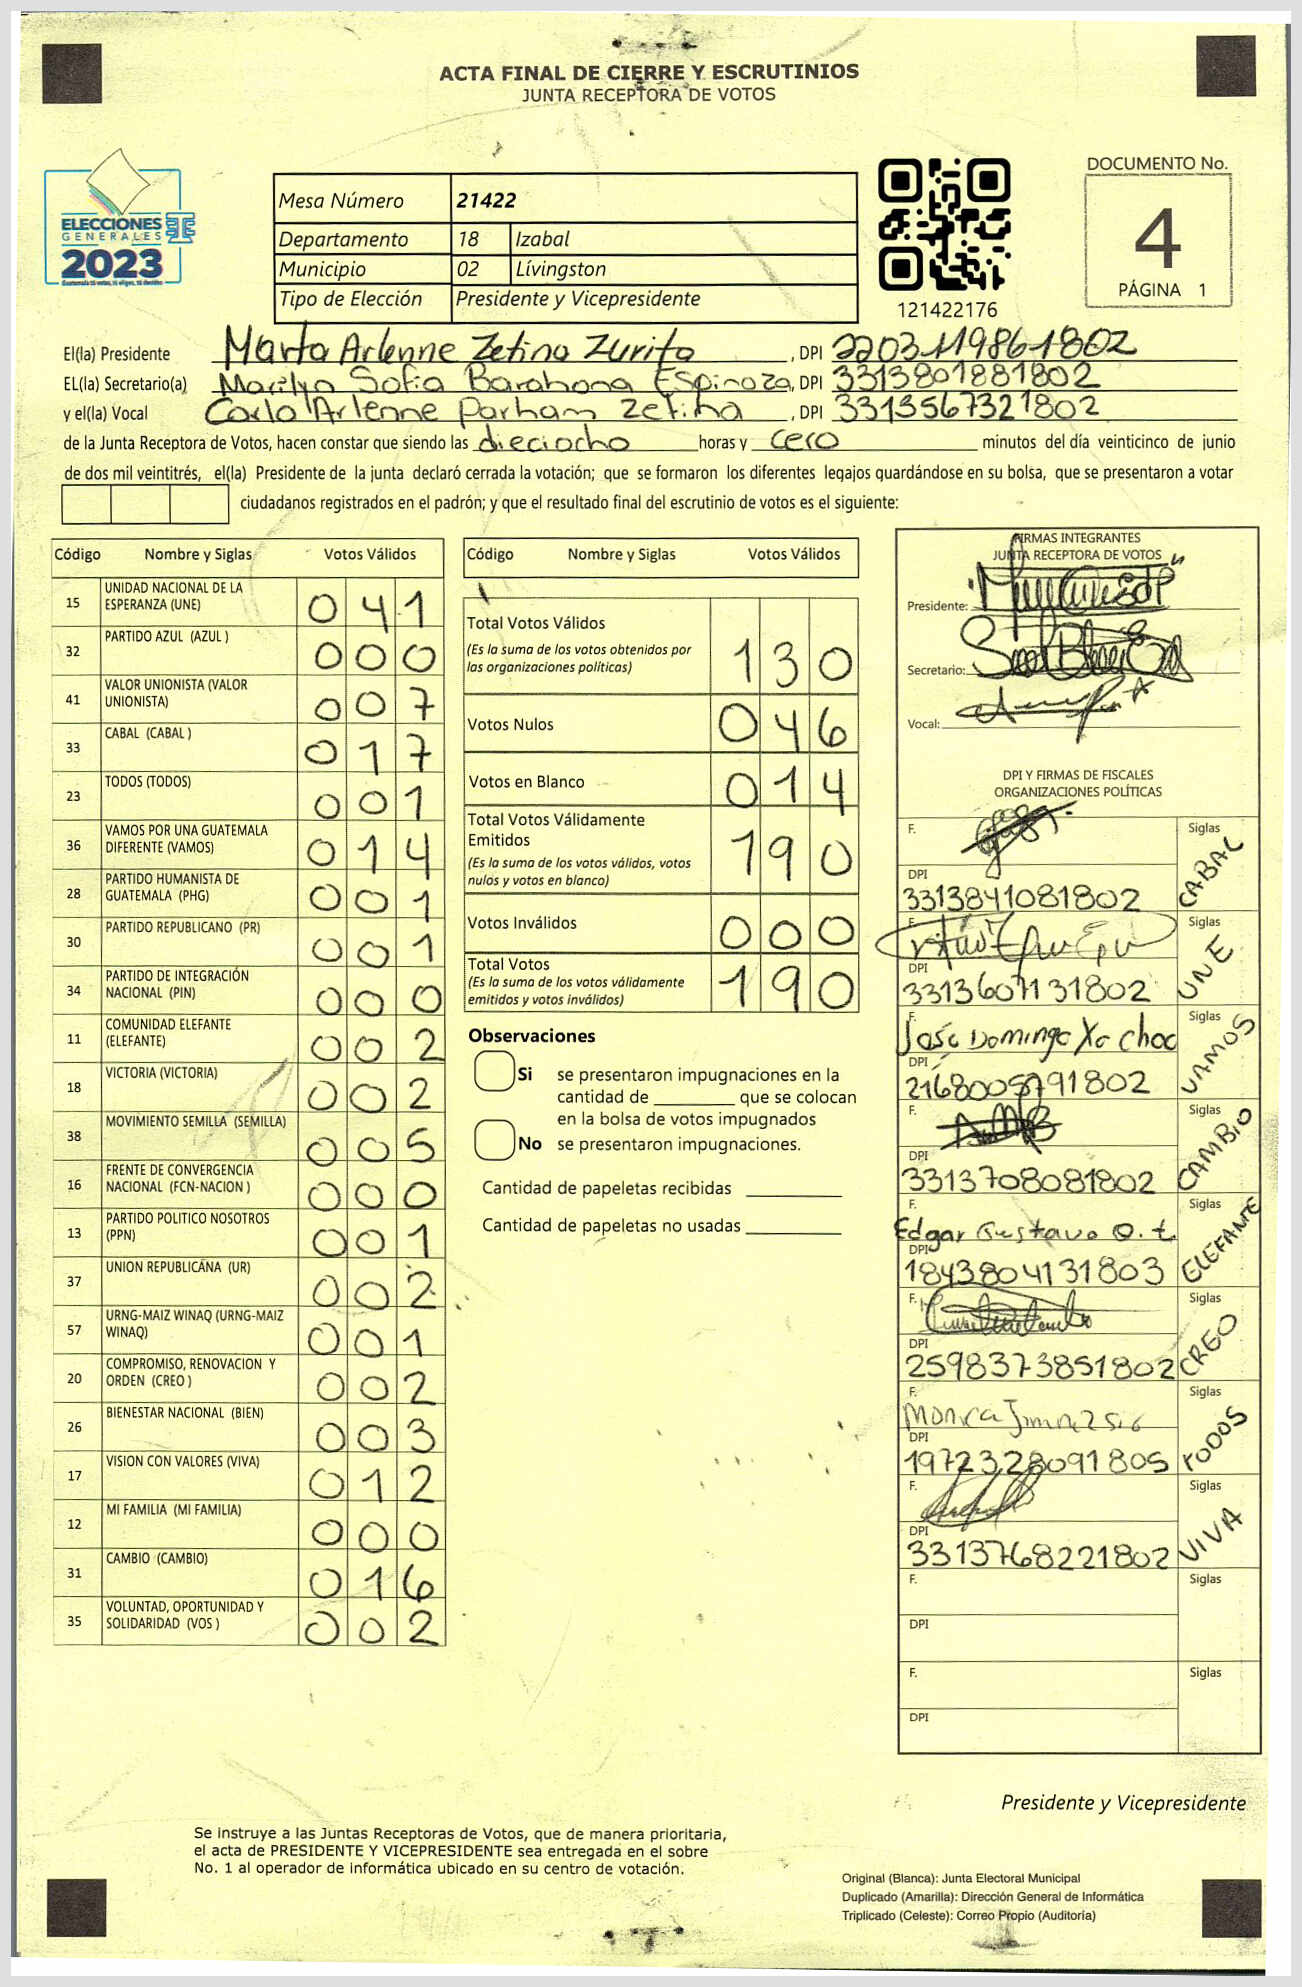 ACTA FINAL DE CIERRE Y ESCRUTINIOS
JUNTA RECEPTORA DE VOTOS
ELECCIONES
GENERALES
2023
Mesa Número 21422
Departamento 18 Izabal
Municipio 02 Lívingston
Tipo de Elección Presidente y Vicepresidente
121422176
DOCUMENTO No.
4
PÁGINA 1
El(la) Presidente Marta Arlenne Zetino Zurita, DPI 2203119861802
EL(la) Secretario(a) Marilyn Sofia Barahona Espinoza, DPI 3313801881802
y el(la) Vocal Carlo Arlenne Parham Zetina, DPI 3313567321802
de la Junta Receptora de Votos, hacen constar que siendo las dieciocho horas y cero minutos del día veinticinco de junio
de dos mil veintitrés, el(la) Presidente de la junta declaró cerrada la votación; que se formaron los diferentes legajos guardándose en su bolsa, que se presentaron a votar
ciudadanos registrados en el padrón; y que el resultado final del escrutinio de votos es el siguiente:
Código Nombre y Siglas Votos Válidos
15 UNIDAD NACIONAL DE LA ESPERANZA (UNE) 041
32 PARTIDO AZUL (AZUL ) 000
41 VALOR UNIONISTA (VALOR UNIONISTA) 007
33 CABAL (CABAL ) 017
23 TODOS (TODOS) 001
36 VAMOS POR UNA GUATEMALA DIFERENTE (VAMOS) 014
28 PARTIDO HUMANISTA DE GUATEMALA (PHG) 001
30 PARTIDO REPUBLICANO (PR) 001
34 PARTIDO DE INTEGRACIÓN NACIONAL (PIN) 000
11 COMUNIDAD ELEFANTE (ELEFANTE) 002
18 VICTORIA (VICTORIA) 002
38 MOVIMIENTO SEMILLA (SEMILLA) 005
16 FRENTE DE CONVERGENCIA NACIONAL (FCN-NACION ) 000
13 PARTIDO POLITICO NOSOTROS (PPN) 001
37 UNION REPUBLICANA (UR) 002
57 URNG-MAIZ WINAQ (URNG-MAIZ WINAQ) 001
20 COMPROMISO, RENOVACION Y ORDEN (CREO ) 002
26 BIENESTAR NACIONAL (BIEN) 003
17 VISION CON VALORES (VIVA) 012
12 MI FAMILIA (MI FAMILIA) 000
31 CAMBIO (CAMBIO) 016
35 VOLUNTAD, OPORTUNIDAD Y SOLIDARIDAD (VOS ) 002
Código Nombre y Siglas Votos Válidos
Total Votos Válidos 130
(Es la suma de los votos obtenidos por
las organizaciones políticas)
Votos Nulos 046
Votos en Blanco 014
Total Votos Válidamente
Emitidos 190
(Es la suma de los votos válidos, votos
nulos y votos en blanco)
Votos Inválidos 000
Total Votos 190
(Es la suma de los votos válidamente
emitidos y votos inválidos)
Observaciones
Si se presentaron impugnaciones en la
cantidad de ________ que se colocan
en la bolsa de votos impugnados
No se presentaron impugnaciones.
Cantidad de papeletas recibidas
Cantidad de papeletas no usadas
FIRMAS INTEGRANTES
JUNTA RECEPTORA DE VOTOS
Presidente:
Secretario:
Vocal:
DPI Y FIRMAS DE FISCALES
ORGANIZACIONES POLÍTICAS
F. Siglas CABAL
DPI 3313841081802
F. Siglas UNE
DPI 3313607131802
F. José Domingo Xo Choc Siglas VAMOS
DPI 2168005791802
F. Siglas CAMBIO
DPI 3313708081802
F. Edgar Gustavo O. t. Siglas ELEFANTE
DPI 1843804131803
F. Siglas CREO
DPI 2598373851802
F. Monica Siglas TODOS
DPI 1972328091805
F. Siglas VIVA
DPI 3313768221802
F. Siglas
DPI
F. Siglas
DPI
Presidente y Vicepresidente
Se instruye a las Juntas Receptoras de Votos, que de manera prioritaria,
el acta de PRESIDENTE Y VICEPRESIDENTE sea entregada en el sobre
No. 1 al operador de informática ubicado en su centro de votación.
Original (Blanca): Junta Electoral Municipal
Duplicado (Amarilla): Dirección General de Informática
Triplicado (Celeste): Correo Propio (Auditoría)